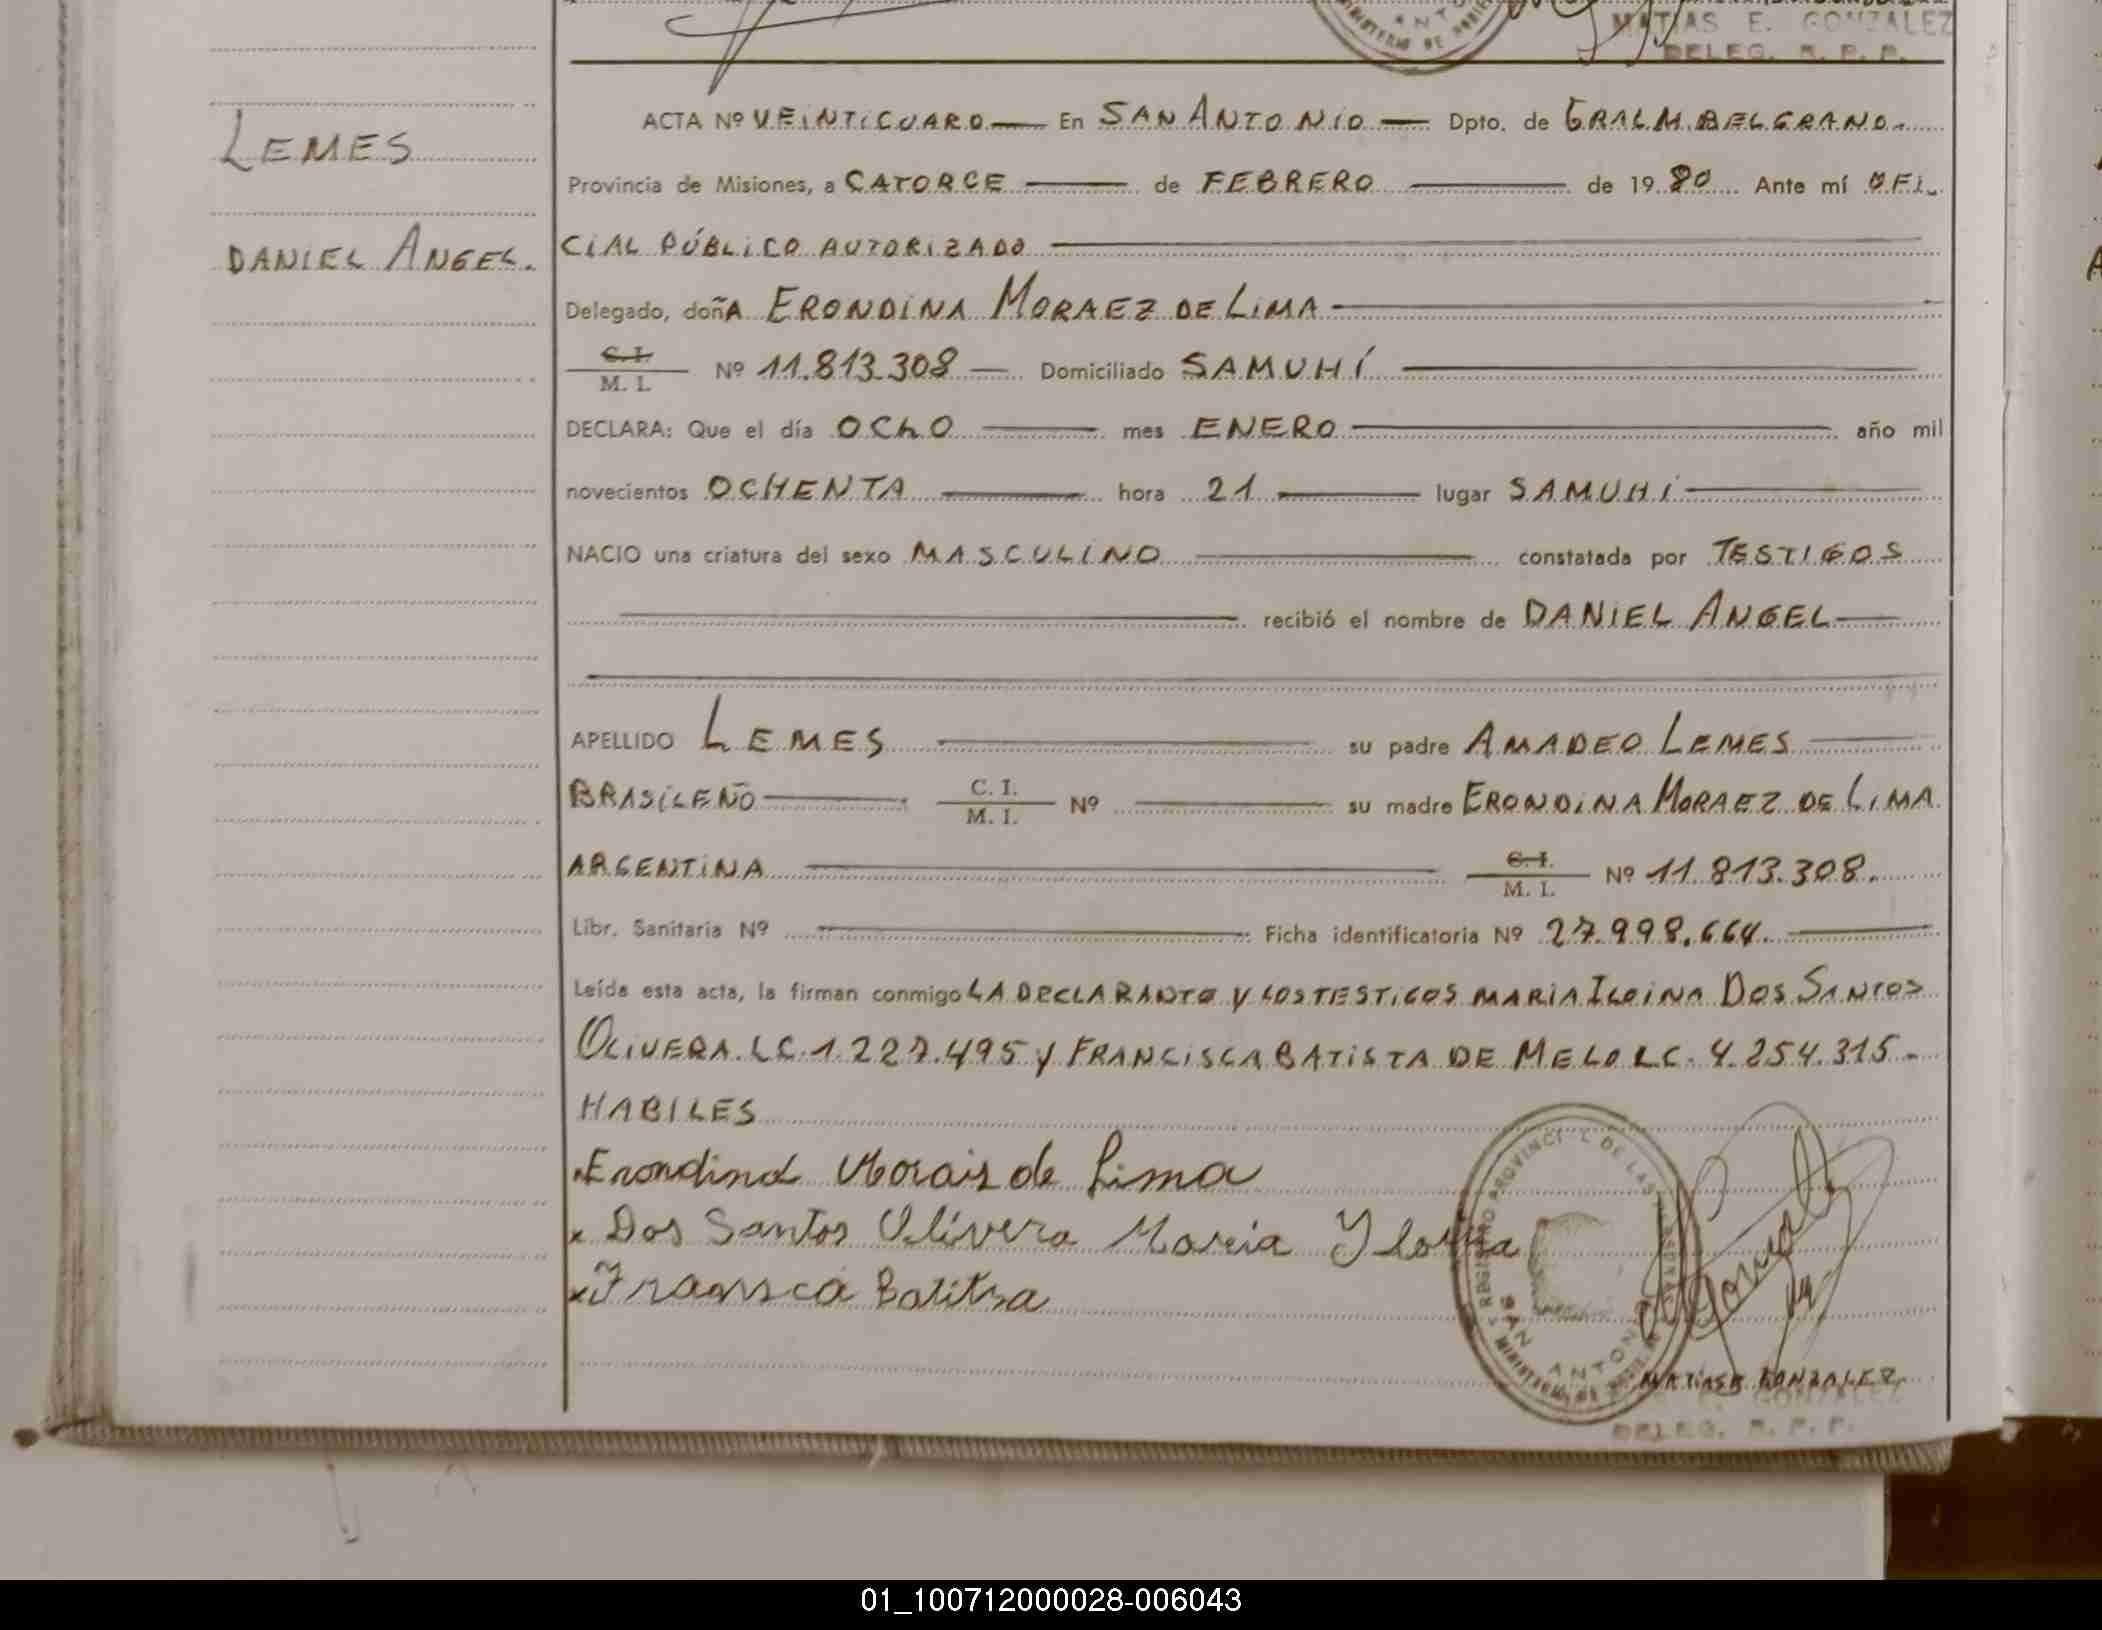 MATIAS E. GONZALEZ
DELEG. R. P. P.
LEMES
DANIEL ANGEL.
ACTA Nº VEINTICUARO En SAN ANTONIO Dpto. de GRAL M. BELGRANO.
Provincia de Misiones, a CATORCE de FEBRERO de 1980 Ante mí OFI-
CIAL PÚBLICO AUTORIZADO
Delegado, doñA ERONDINA MORAEZ DE LIMA
C. I. / M. I. Nº 11.813.308 Domiciliado SAMUHÍ
DECLARA: Que el día OChO mes ENERO año mil
novecientos OCHENTA hora 21 lugar SAMUHÍ
NACIO una criatura del sexo MASCULINO constatada por TESTIGOS
recibió el nombre de DANIEL ANGEL
APELLIDO LEMES su padre AMADEO LEMES
BRASILEÑO C. I. / M. I. Nº su madre ERONDINA MORAEZ DE LIMA
ARGENTINA C. I. / M. I. Nº 11.813.308.
Libr. Sanitaria Nº Ficha identificatoria Nº 27.998.664.
Leída esta acta, la firman conmigo LA DECLARANTE Y LOS TESTIGOS MARIA ILDINA DOS SANTOS
OLIVERA. LC. 1.227.495 y FRANCISCA BATISTA DE MELO LC. 4.254.315.-
HABILES
Erondina Morais de Lima
x Dos Santos Olivera Maria
x Fransca Batitsa
SAN ANTONIO
MATIAS E. GONZALEZ
DELEG. R. P. P.
01_100712000028-006043